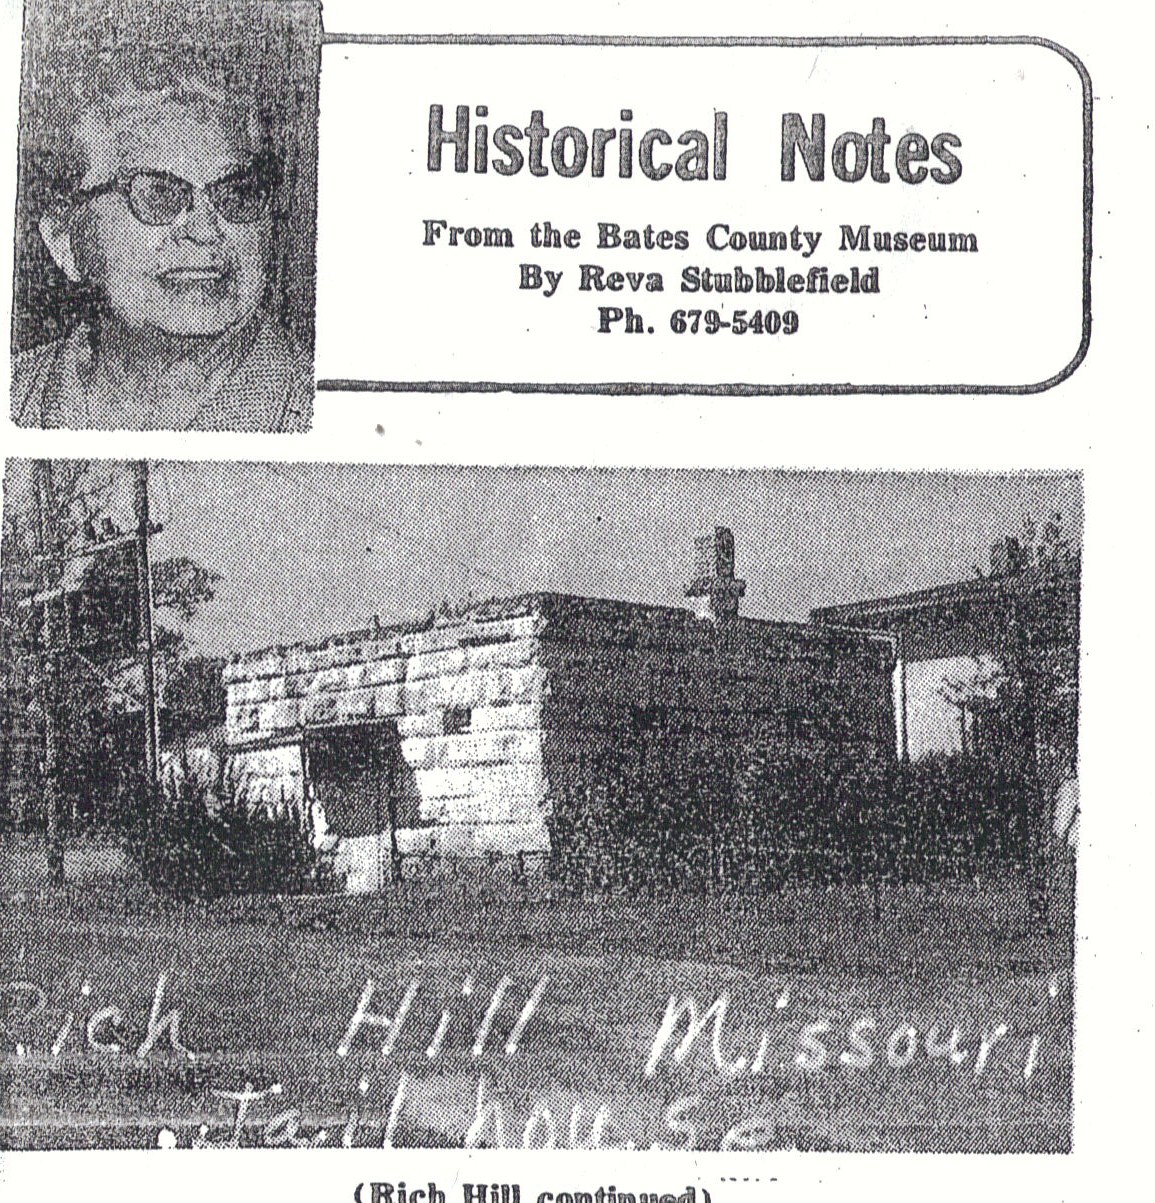 Historical Notes
From the Bates County Museum
By Reva Stubblefield
Ph. 679-5409
Rich Hill Missouri
Jail house
(Rich Hill continued)